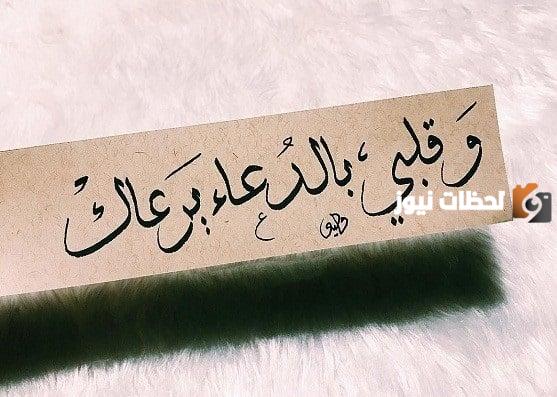 وَقلبي، بالدُعاء يَرعاكْ
لحظات نيوز